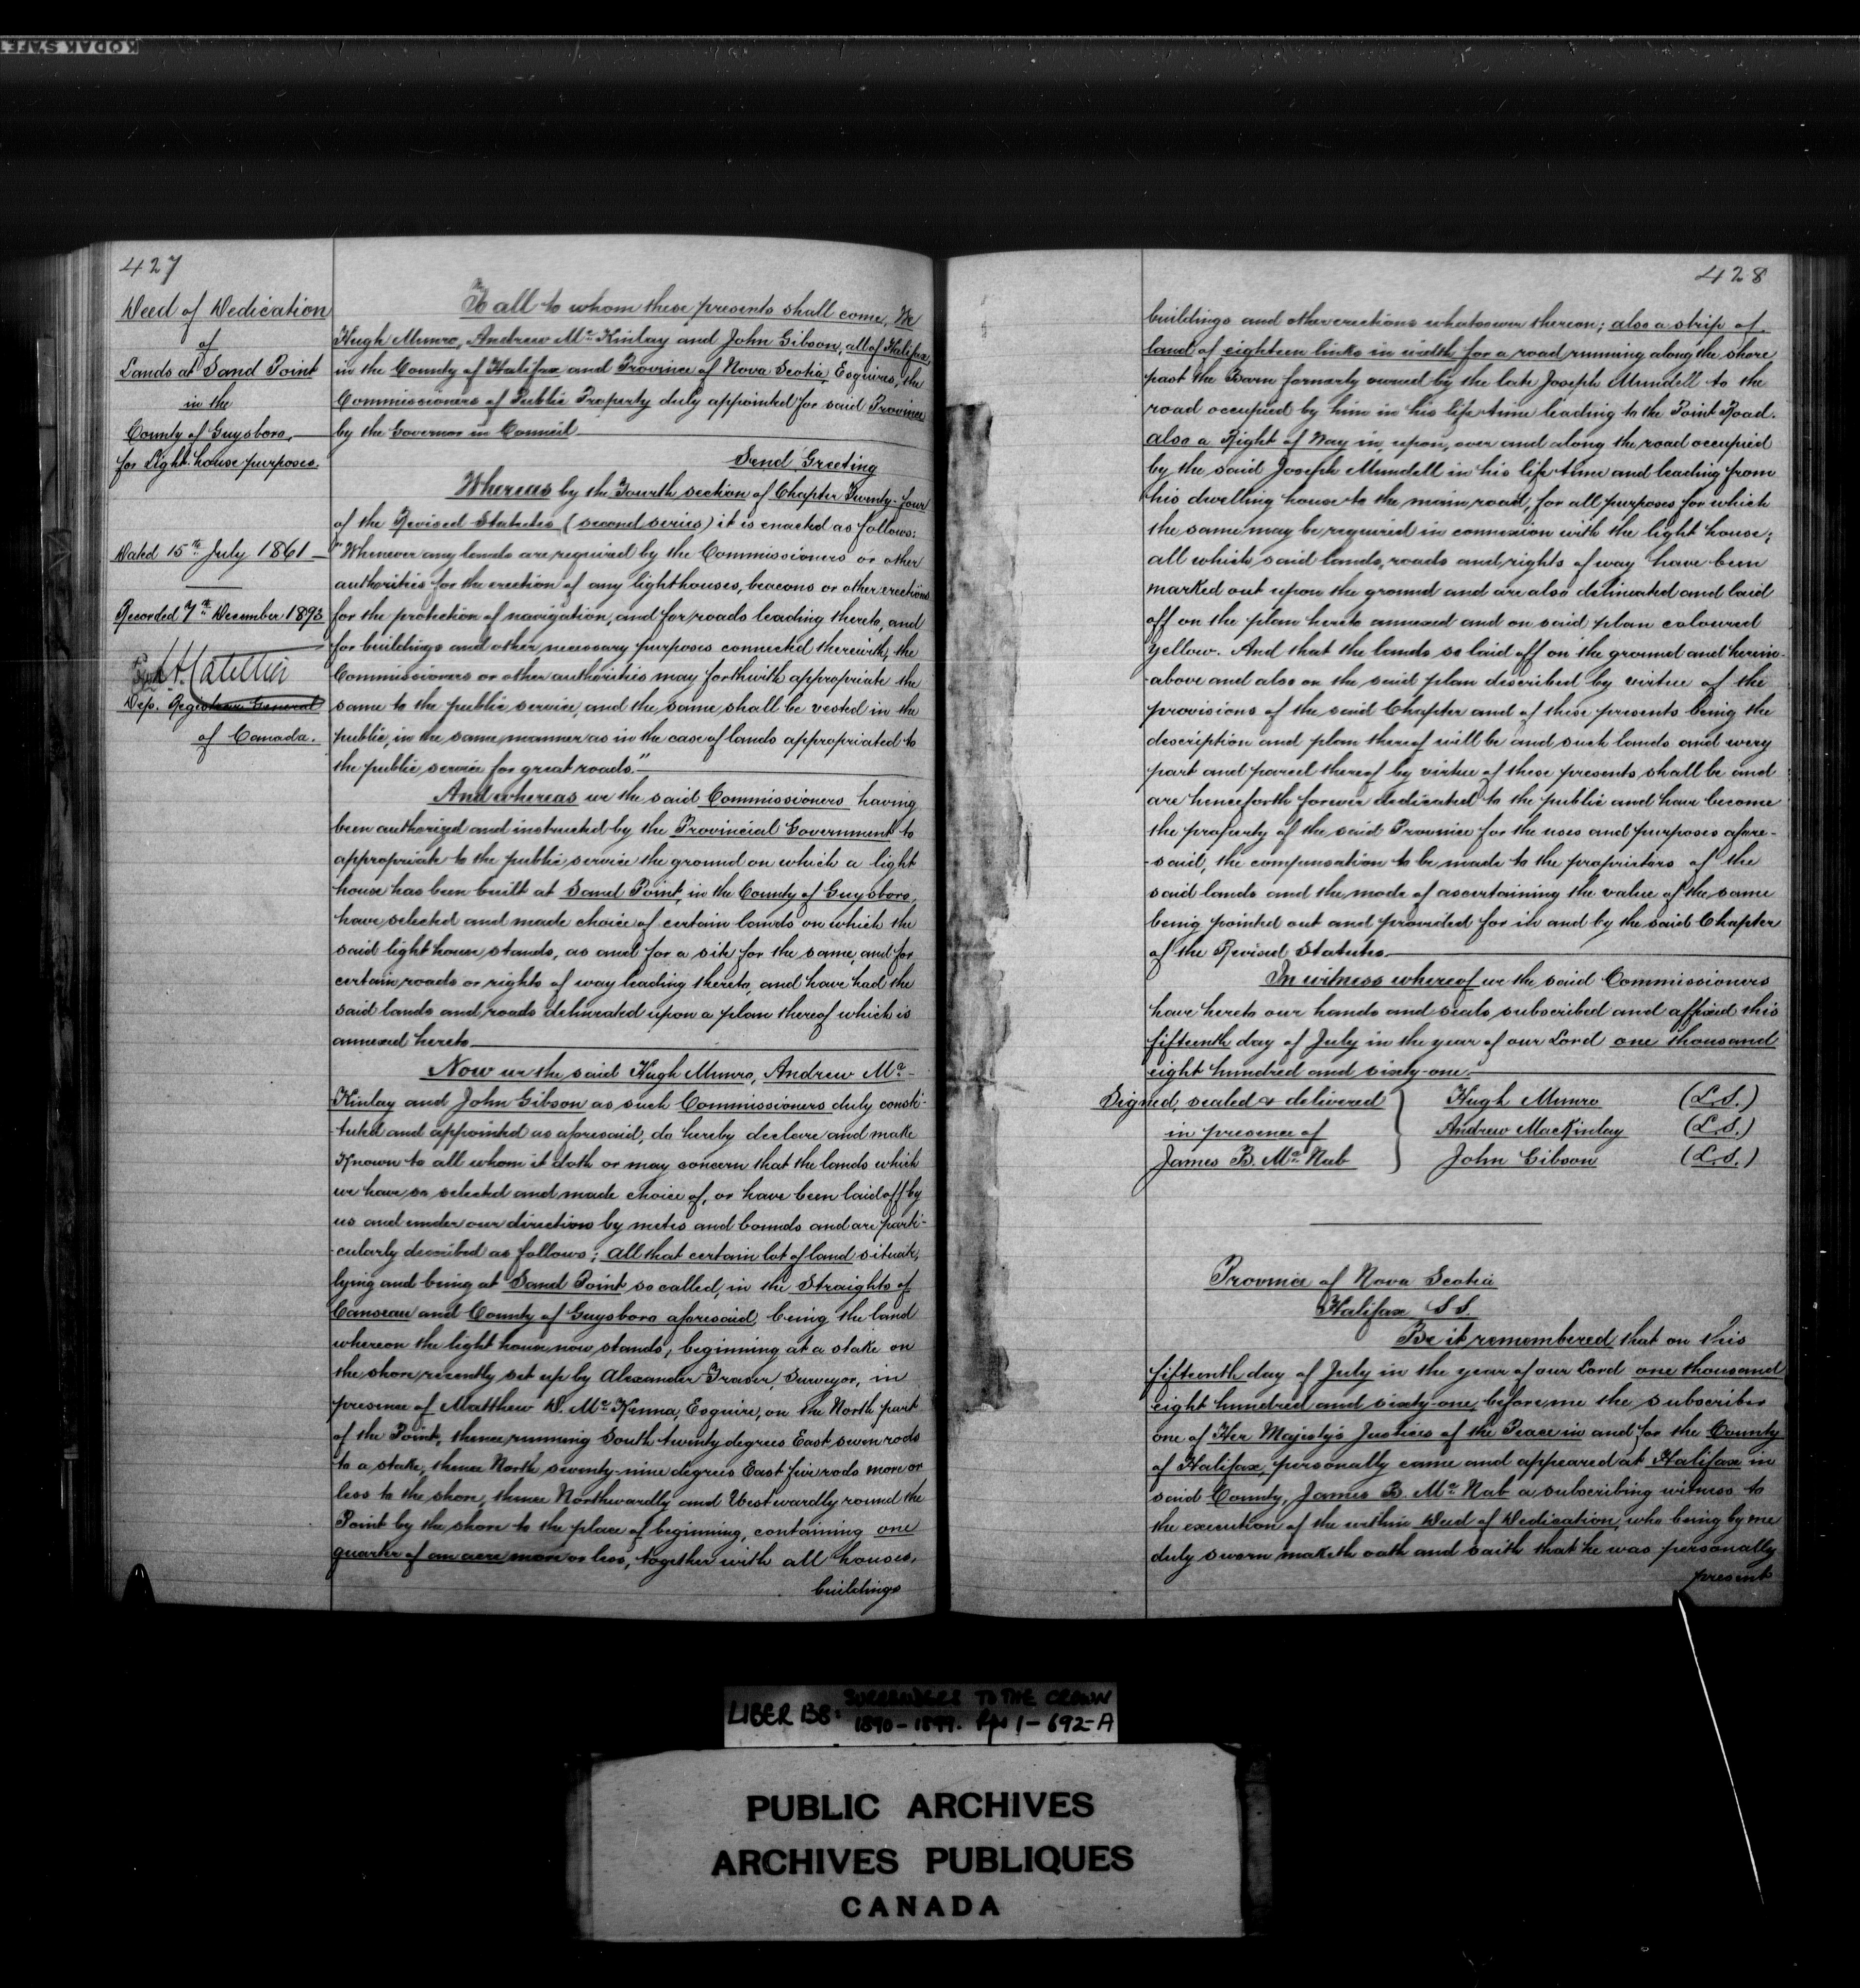 KODAK SAFE
427
Deed of Dedication
of
Lands at Sand Point
in the
County of Guysboro,
for Light-house purposes.
Dated 15th July 1861
Recorded 7th December 1893
Dep. Registrar General
of Canada.
To all to whom these presents shall come, We
Hugh Munro, Andrew Mc Kinlay and John Gibson, all of Halifax,
in the County of Halifax and Province of Nova Scotia, Esquires, the
Commissioners of Public Property duly appointed for said Province
by the Governor in Council
Send Greeting
Whereas by the Fourth section of Chapter Twenty-four
of the Revised Statutes (second series) it is enacted as follows:
"Whenever any lands are required by the Commissioners or other
authorities for the erection of any lighthouses, beacons or other erections
for the protection of navigation, and for roads leading thereto, and
for buildings and other necessary purposes connected therewith, the
Commissioners or other authorities may forthwith appropriate the
same to the public service, and the same shall be vested in the
public, in the same manner as in the case of lands appropriated to
the public service for great roads."
And whereas we the said Commissioners having
been authorized and instructed by the Provincial Government to
appropriate to the public service the ground on which a light
house has been built at Sand Point, in the County of Guysboro,
have selected and made choice of certain lands on which the
said light house stands, as and for a site for the same, and for
certain roads or rights of way leading thereto, and have had the
said lands and roads delineated upon a plan thereof which is
annexed hereto
Now we the said Hugh Munro, Andrew Mc-
Kinlay and John Gibson as such Commissioners duly consti-
-tuted and appointed as aforesaid, do hereby declare and make
Known to all whom it doth or may concern that the lands which
we have so selected and made choice of, or have been laid off by
us and under our direction by metes and bounds and are parti-
-cularly described as follows; all that certain lot of land situate,
lying and being at Sand Point so called, in the Straights of
Canseau and County of Guysboro aforesaid, being the land
whereon the light house now stands, beginning at a stake on
the shore, recently set up by Alexander Fraser, Surveyor, in
presence of Matthew D. Mc Kenna, Esquire, on the North part
of the Point, thence running South twenty degrees East seven rods
to a stake, thence North seventy-nine degrees East five rods more or
less to the shore, thence Northwardly and Westwardly round the
Point by the shore to the place of beginning, containing one
quarter of an acre more or less, together with all houses,
buildings
428
buildings and other erections whatsoever thereon; also a strip of
land of eighteen links in width for a road running along the shore
past the Barn formerly owned by the late Joseph Mundell to the
road occupied by him in his life-time leading to the Point Road.
also a Right of Way in, upon, over and along the road occupied
by the said Joseph Mundell in his life-time and leading from
his dwelling house to the main road, for all purposes for which
the same may be required in connexion with the light house;
all which said lands, roads and rights of way have been
marked out upon the ground and are also delineated and laid
off on the plan hereto annexed and on said plan coloured
yellow. And that the lands so laid off on the ground and herein-
-above and also on the said plan described by virtue of the
provisions of the said Chapter and of these presents being the
description and plan thereof will be and such lands and every
part and parcel thereof by virtue of these presents shall be and
are henceforth forever dedicated to the public and have become
the property of the said Province for the uses and purposes afore-
-said, the compensation to be made to the proprietors of the
said lands and the mode of ascertaining the value of the same
being pointed out and provided for in and by the said Chapter
of the Revised Statutes.
In witness whereof we the said Commissioners
have hereto our hands and seals subscribed and affixed this
fifteenth day of July in the year of our Lord one thousand
eight hundred and sixty-one.
Signed, sealed & delivered } Hugh Munro (L.S.)
in presence of Andrew MacKinlay (L.S.)
James B. Mc Nab John Gibson (L.S.)
Province of Nova Scotia
Halifax S.S.
Be it remembered that on this
fifteenth day of July in the year of our Lord one thousand
eight hundred and sixty-one, before me the subscriber
one of Her Majesty's Justices of the Peace in and for the County
of Halifax, personally came and appeared at Halifax in
said County, James B. Mc Nab a subscribing witness to
the execution of the within Deed of Dedication, who being by me
duly sworn maketh oath and saith that he was personally
present
LIBER BB: SURRENDERS TO THE CROWN
1890-1899. Pps 1-692-A
PUBLIC ARCHIVES
ARCHIVES PUBLIQUES
CANADA